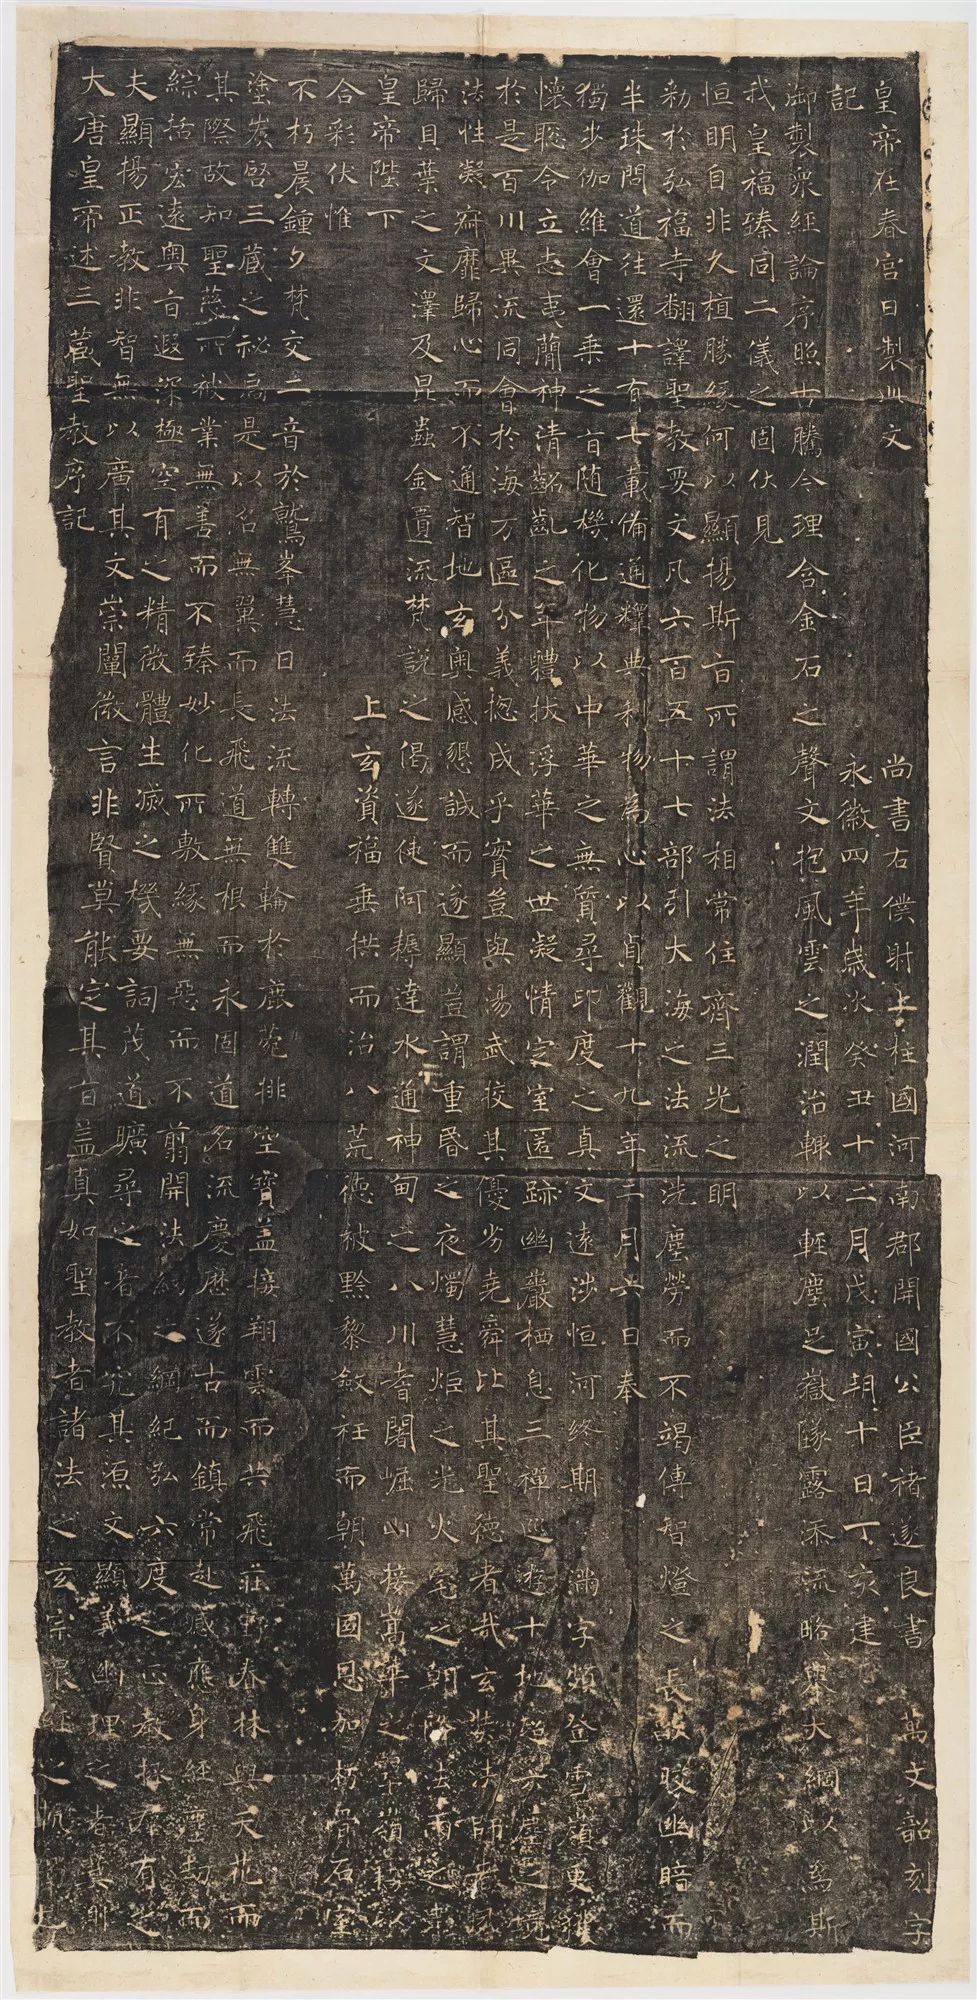 大唐皇帝述三藏聖教序記
夫顯揚正教非智無以廣其文崇闡微言非賢莫能定其旨蓋真如聖教者諸法之玄宗衆經之軌躅也
綜括宏遠奧旨遐深極空有之精微體生滅之機要詞茂道曠尋之者不究其源文顯義幽理之者莫測
其際故知聖慈所被業無善而不臻妙化所敷緣無惡而不翦開法網之綱紀弘六度之正教拯群有之
塗炭啓三藏之祕扃是以名無翼而長飛道無根而永固道名流慶歷遂古而鎮常赴感應身經塵劫而
不朽晨鍾夕梵交二音於鷲峯慧日法流轉雙輪於鹿菀排空寶蓋接翔雲而共飛莊野春林與天花而
合彩伏惟
皇帝陛下 上玄資福垂拱而治八荒德被黔黎斂衽而朝萬國恩加朽骨石室
歸貝葉之文澤及昆蟲金匱流梵說之偈遂使阿耨達水通神甸之八川耆闍崛山接嵩華之翠嶺竊以
法性凝寂靡歸心而不通智地玄奧感懇誠而遂顯豈謂重昏之夜燭慧炬之光火宅之朝降法雨之澤
於是百川異流同會於海万區分義揔成乎實豈與湯武校其優劣堯舜比其聖德者哉玄奘法師者夙
懷聰令立志夷簡神清齠齔之年體拔浮華之世凝情定室匿跡幽巖栖息三禪巡遊十地超六塵之境
獨步伽維會一乘之旨隨機化物以中華之無質尋印度之真文遠涉恒河終期滿字頻登雪嶺更獲
半珠問道往還十有七載備通釋典利物為心以貞觀十九年二月六日奉
勑於弘福寺翻譯聖教要文凡六百五十七部引大海之法流洗塵勞而不竭傳智燈之長焰皎幽暗而
恒明自非久植勝緣何以顯揚斯旨所謂法相常住齊三光之明
我皇福臻同二儀之固伏見
御製衆經論序照古騰今理含金石之聲文抱風雲之潤治輒以輕塵足嶽墜露添流略舉大綱以為斯
記 永徽四年歲次癸丑十二月戊寅朔十日丁亥建
皇帝在春宮日製此文 尚書右僕射上柱國河南郡開國公臣褚遂良書 萬文韶刻字